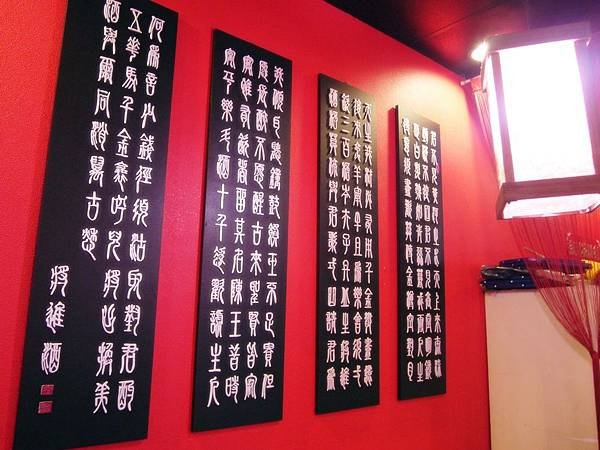 君不見黃河之水天上來奔流
到海不復回君不見高堂明鏡
悲白髮朝如青絲暮成雪人生
得意須盡歡莫使金樽空對月
天生我材必有用千金散盡還
復來烹羊宰牛且爲樂會須弌
飲三百杯岑夫子丹丘生將進
酒杯莫停與君歌弌曲請君爲
我傾耳聽鐘鼓饌玉不足貴但
願長醉不願醒古來聖賢皆寂
寞惟有飲者留其名陳王昔時
宴平樂斗酒十千恣歡謔主人
何爲言少錢徑須沽取對君酌
五華馬千金裘呼兒將出換美
酒與爾同消萬古愁
將進酒